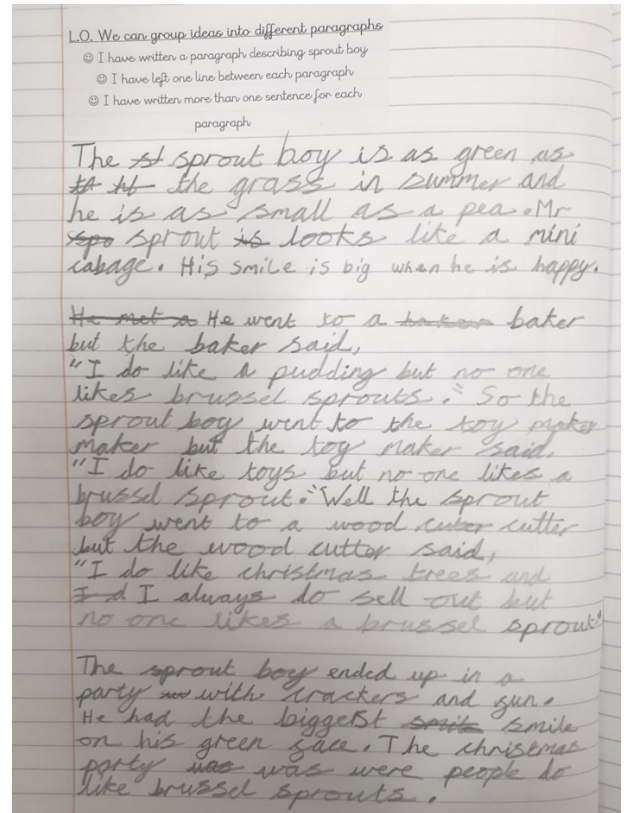 L.O. We can group ideas into different paragraphs
☺ I have written a paragraph describing sprout boy
☺ I have left one line between each paragraph
☺ I have written more than one sentence for each
paragraph
The st sprout boy is as green as
the grass in summer and
he is as small as a pea. Mr
spo sprout is looks like a mini
cabage. His smile is big when he is happy.
He met a He went to a baker baker
but the baker said,
"I do like a pudding but no one
likes brussel sprouts." So the
sprout boy went to the toy maker
maker but the toy maker said,
"I do like toys but no one likes a
brussel sprout." Well the sprout
boy went to a wood cuter cutter
but the wood cutter said,
"I do like christmas trees and
I d I always do sell out but
no one likes a brussel sprout."
The sprout boy ended up in a
party with crackers and fun.
He had the biggest smile smile
on his green face. The christmas
party was was were people do
like brussel sprouts.